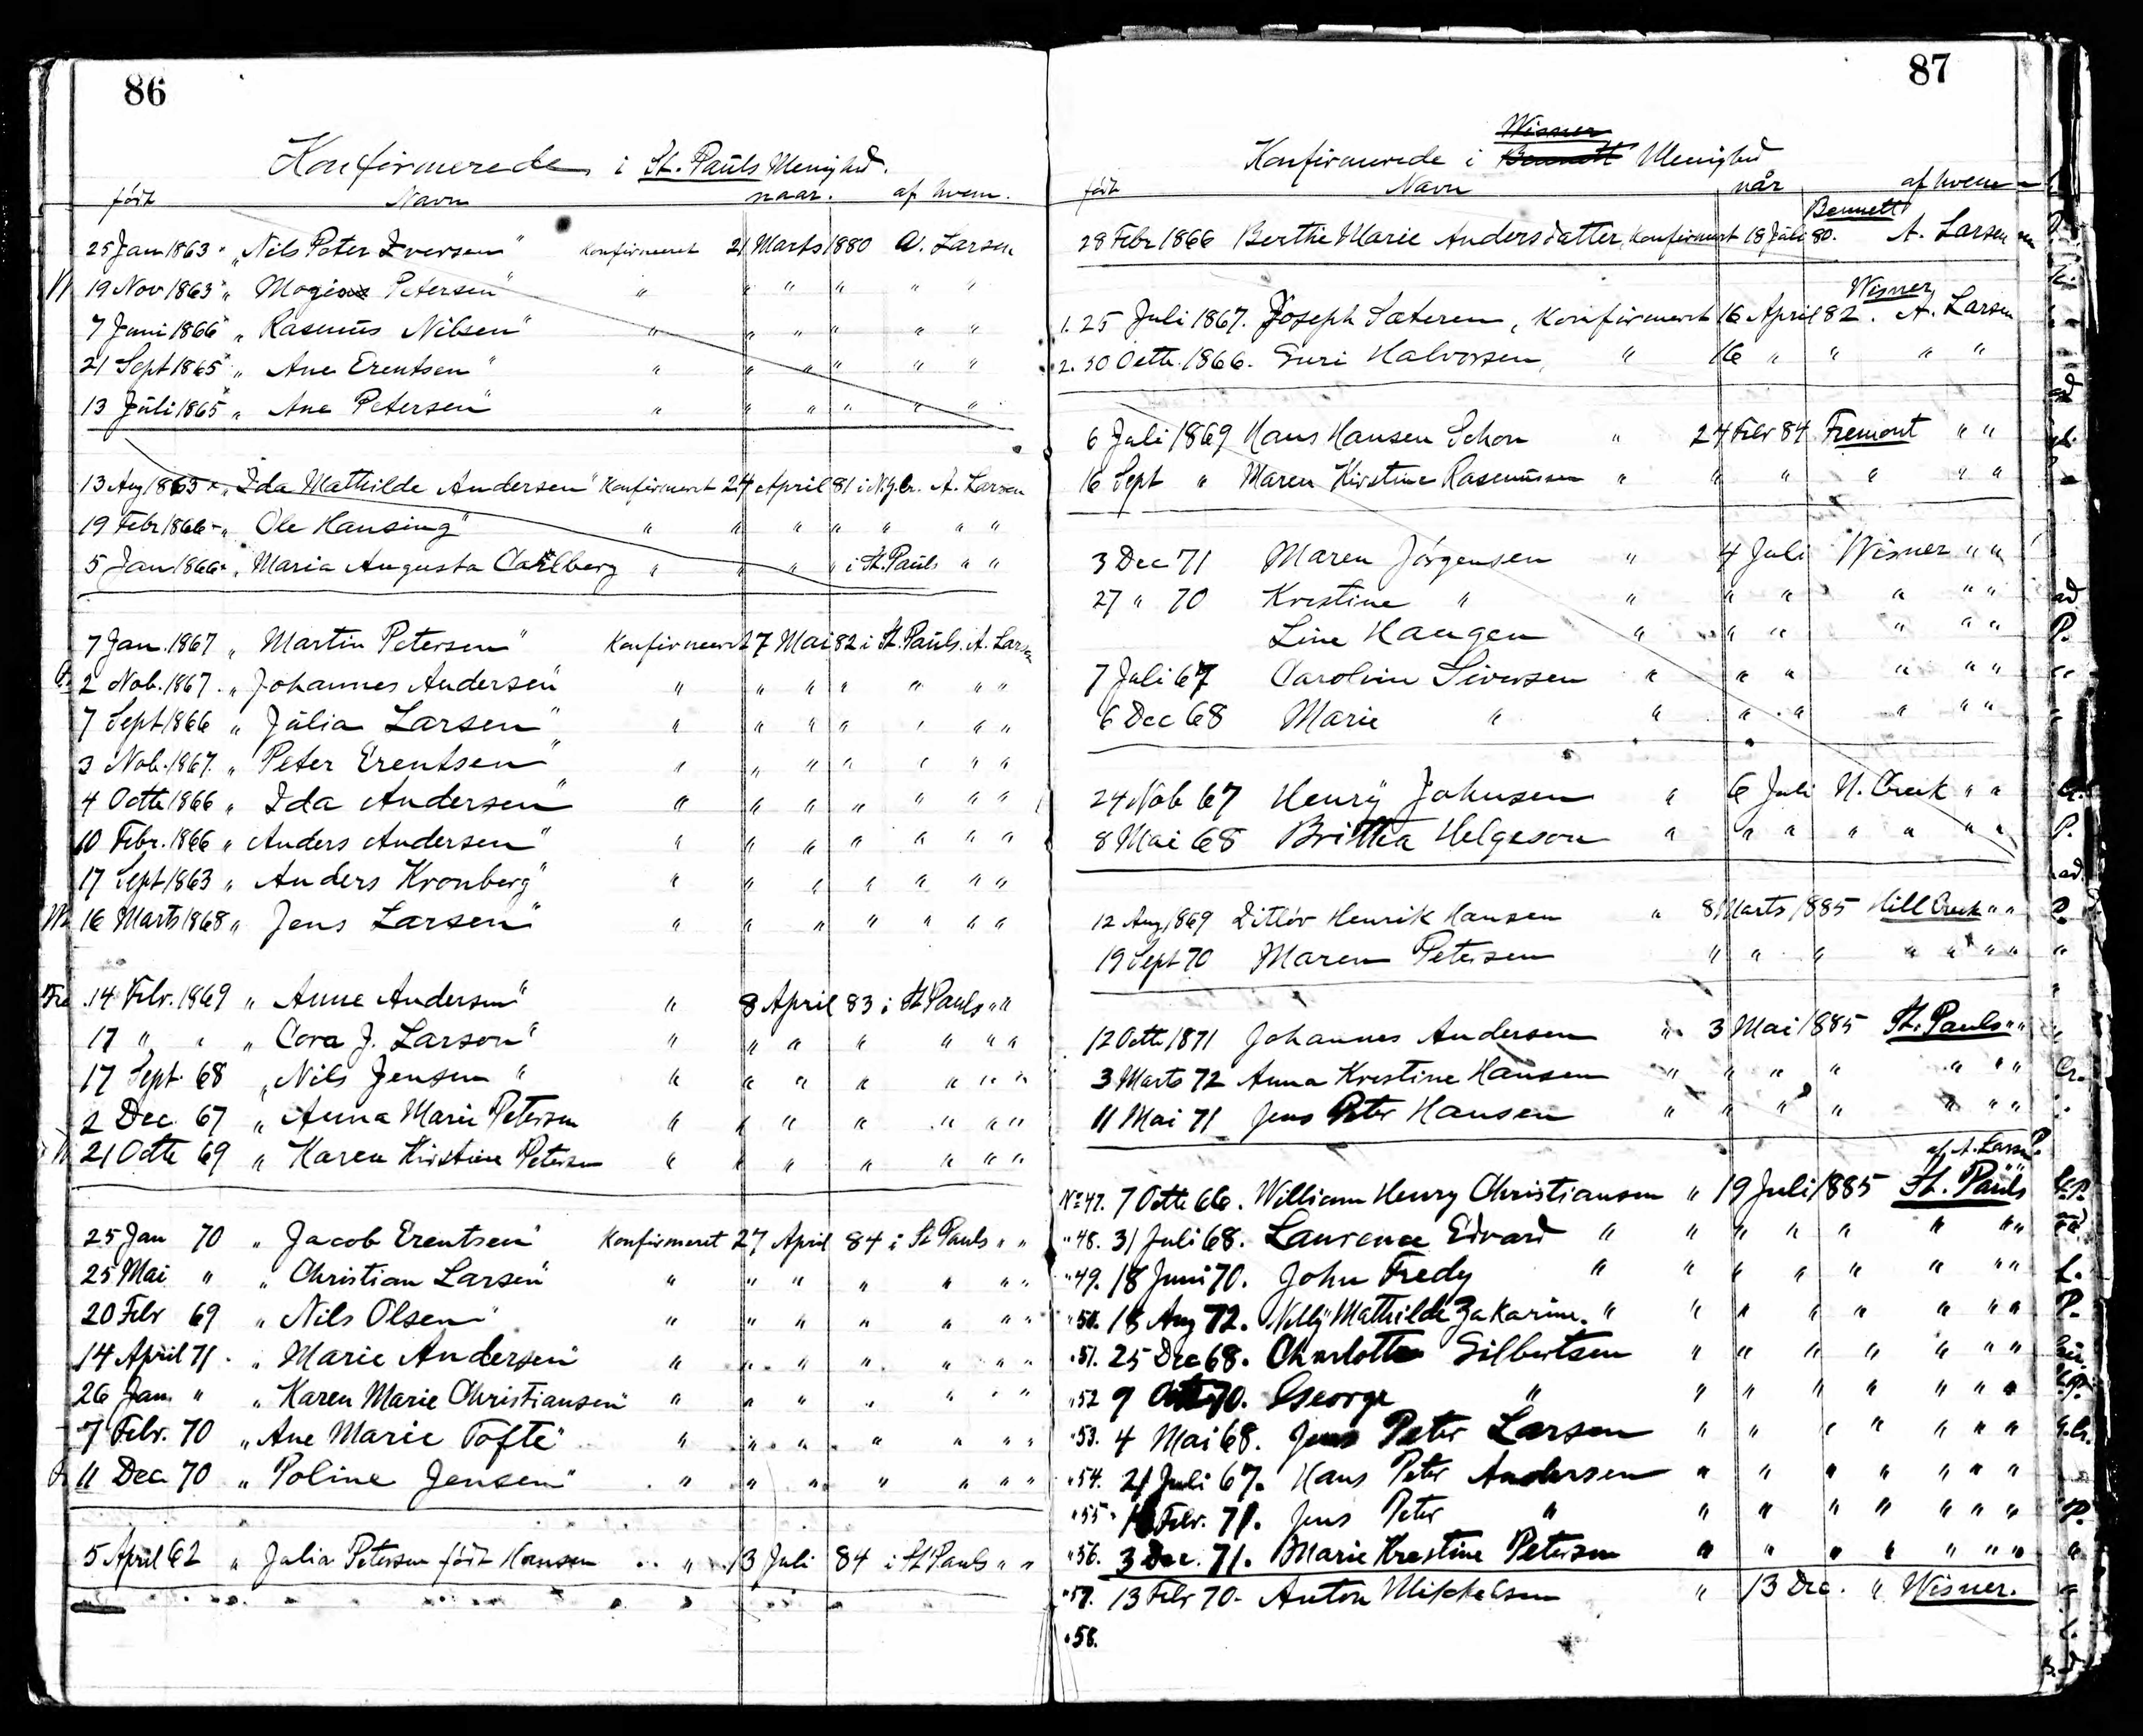 86
Konfirmerede i St. Pauls Menighed.
født Navn naar. af hvem.
25 Jan 1863 " Nils Peter Iversen " Konfirmeret 21 Marts 1880 A. Larsen
19 Nov 1863 " Mogens Petersen " " " " " " "
7 Juni 1866 " Rasmus Nilsen " " " " " " "
21 Sept 1865 " Ane Erentsen " " " " " " "
13 Juli 1865 " Ane Petersen " " " " " " "
13 Aug 1865 " Ida Mathilde Andersen " Konfirmeret 24 April 81 i N.y.Cr. A. Larsen
19 Febr 1866 " Ole Hansing " " " " " " " "
5 Jan 1866 " Maria Augusta Carlberg " " " " i St. Pauls " "
7 Jan. 1867 " Martin Petersen " Konfirmeret 7 Mai 82 i St. Pauls. A. Larsen
2 Nob. 1867 . " Johannes Andersen " " " " " " " "
7 Sept 1866 " Julia Larsen " " " " " " " "
3 Nob. 1867. " Peter Erentsen " " " " " " " "
4 Octb 1866 " Ida Andersen " " " " " " " "
10 Febr. 1866 " Anders Andersen " " " " " " " "
17 Sept 1863 " Anders Kronberg " " " " " " " "
16 Marts 1868 " Jens Larsen " " " " " " " "
Fre 14 Febr. 1869 " Anne Andersen " " 8 April 83 i St Pauls " "
17 " " " Cora J. Larson " " " " " " " "
17 Sept. 68 " Nils Jensen " " " " " " " "
2 Dec. 67 " Anna Marie Petersen " " " " " " "
21 Octb 69 " Karen Kirstine Petersen " " " " " " "
25 Jan 70 " Jacob Erentsen " Konfirmeret 27 April 84 i St Pauls " "
25 Mai " " Christian Larsen " " " " " " " "
20 Febr 69 " Nils Olsen " " " " " " " "
14 April 71 . " Marie Andersen " " " " " " " "
26 Jan. " " Karen Marie Christiansen " " " " " " " "
7 Febr. 70 " Ane Marie Tofte " " " " " " " "
11 Dec 70 " Poline Jensen " " " " " " " "
5 April 62 " Julia Petersen født Hansen " 13 Juli 84 i St Pauls " "
87
Wisner
Konfirmerede i Bennett Menighed
født Navn når af hvem
Bennett
28 Febr 1866 Berthe Marie Andersdatter, Konfirmert 18 Juli 80. A. Larsen
Wisner
1. 25 Juli 1867. Joseph Sæteren, Konfirmeret 16 April 82. A. Larsen
2. 30 Octb. 1866. Guri Halvorsen, " 16 " " " "
6 Juli 1869 Hans Hansen Schon " 24 Febr 84 Fremont " "
16 Sept " Maren Kirstine Rasmussen " " " " " "
3 Dec 71 Maren Jørgensen " 4 Juli Wisner " "
27 " 70 Kristine " " " " " " "
Line Haugen " " " " " "
7 Juli 67 Carolin Siversen " " " " " "
6 Dec 68 Marie " " " " " " "
24 Nob 67 Henry Johnsen " 6 Juli N. Creek " "
8 Mai 68 Brittha Helgeson " " " " " " "
12 Aug 1869 Ditlev Henrik Hansen " 8 Marts 1885 Hill Creek " "
19 Sept 70 Maren Petersen " " " " " " "
12 Octb 1871 Johannes Andersen " 3 Mai 1885 St. Pauls " "
3 Marts 72 Anna Kristine Hansen " " " " " " "
11 Mai 71 Jens Peter Hansen " " " " " " "
af A. Larsen
No 47. 7 Octb 66. William Henry Christiansen " 19 Juli 1885 St. Pauls
" 48. 31 Juli 68. Laurence Edvard " " " " " " " "
" 49. 18 Juni 70. John Fredy " " " " " " " "
" 50. 18 Aug 72. Nelly Mathilde Zakarine. " " " " " " " "
" 51. 25 Dec 68. Charlotte Gilbertsen " " " " " " "
" 52 9 Octb 70. George " " " " " " " "
" 53. 4 Mai 68. Jens Peter Larsen " " " " " " "
" 54. 21 Juli 67. Hans Peter Andersen " " " " " " "
" 55. Febr. 71. Jens Peter " " " " " " " "
" 56. 3 Dec. 71. Marie Kristine Petersen " " " " " " "
" 57. 13 Febr 70. Anton Mickelsen " 13 Dec. " Wisner.
" 58.